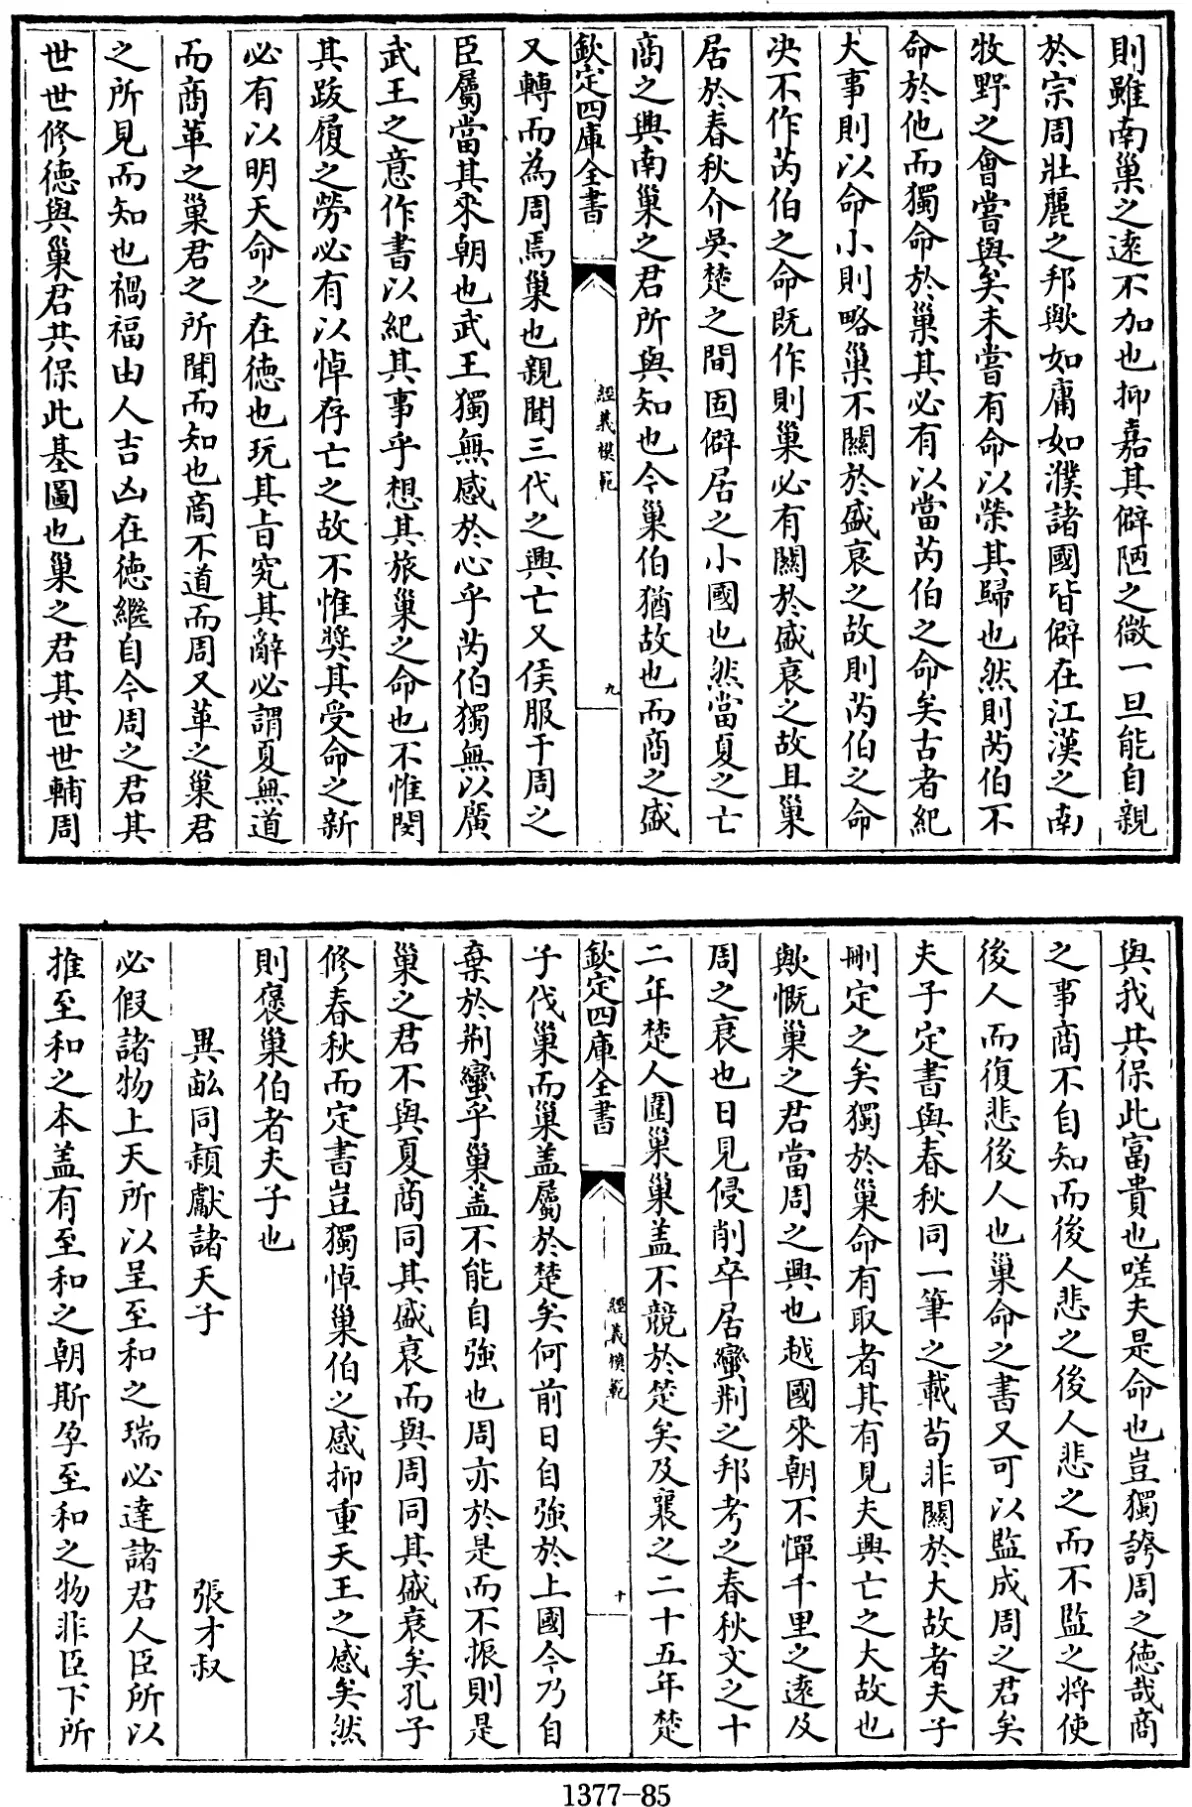 則雖南巢之遠不加也抑嘉其僻陋之微一旦能自親
於宗周壯麗之邦歟如庸如濮諸國皆僻在江漢之南
牧野之會嘗與矣未嘗有命以榮其歸也然則芮伯不
命於他而獨命於巢其必有以當芮伯之命矣古者紀
大事則以命小則略巢不關於盛衰之故則芮伯之命
决不作芮伯之命既作則巢必有關於盛衰之故且巢
居於春秋介吳楚之間固僻居之小國也然當夏之亡
商之興南巢之君所與知也今巢伯猶故也而商之盛
欽定四庫全書
經義模範
九
又轉而為周焉巢也親聞三代之興亡又侯服于周之
臣屬當其來朝也武王獨無感於心乎芮伯獨無以廣
武王之意作書以紀其事乎想其旅巢之命也不惟閔
其跋履之勞必有以悼存亡之故不惟奬其受命之新
必有以明天命之在德也玩其㫖究其辭必謂夏無道
而商革之巢君之所聞而知也商不道而周又革之巢君
之所見而知也禍福由人吉凶在德繼自今周之君其
世世修德與巢君共保此基圖也巢之君其世世輔周
與我共保此富貴也嗟夫是命也豈獨誇周之德哉商
之事商不自知而後人悲之後人悲之而不監之將使
後人而復悲後人也巢命之書又可以監成周之君矣
夫子定書與春秋同一筆之載茍非關於大故者夫子
刪定之矣獨於巢命有取者其有見夫興亡之大故也
歟慨巢之君當周之興也越國來朝不憚千里之遠及
周之衰也日見侵削卒居蠻荆之邦考之春秋文之十
二年楚人圍巢巢盖不競於楚矣及襄之二十五年楚
欽定四庫全書
經義模範
十
子伐巢而巢盖屬於楚矣何前日自強於上國今乃自
棄於荆蠻乎巢盖不能自強也周亦於是而不振則是
巢之君不與夏商同其盛衰而與周同其盛衰矣孔子
修春秋而定書豈獨悼巢伯之感抑重天王之感矣然
則褒巢伯者夫子也
異畝同穎獻諸天子 張才叔
必假諸物上天所以呈至和之瑞必達諸君人臣所以
推至和之本盖有至和之朝斯孕至和之物非臣下所
1377-85